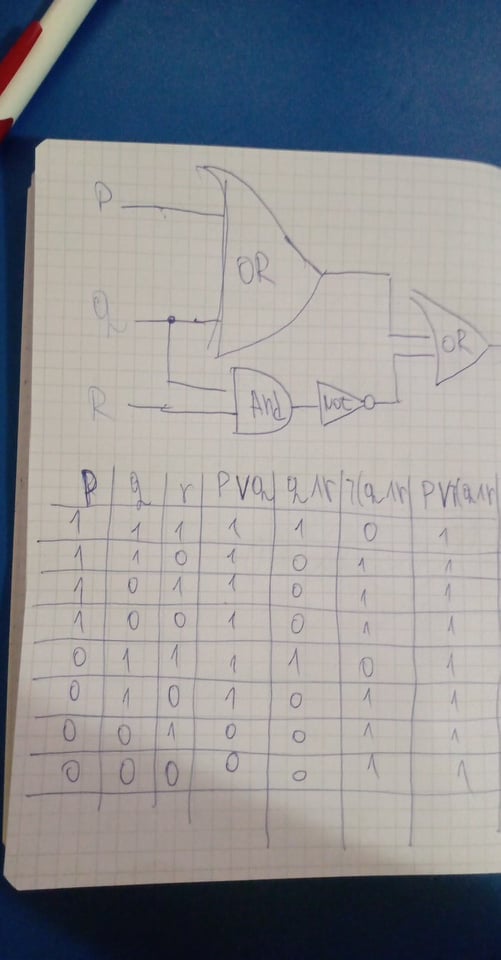 P
OR
Q
OR
R
And
Not
P q r P∨q q∧r ¬(q∧r) P∨¬(q∧r)
1 1 1 1 1 0 1
1 1 0 1 0 1 1
1 0 1 1 0 1 1
1 0 0 1 0 1 1
0 1 1 1 1 0 1
0 1 0 1 0 1 1
0 0 1 0 0 1 1
0 0 0 0 0 1 1